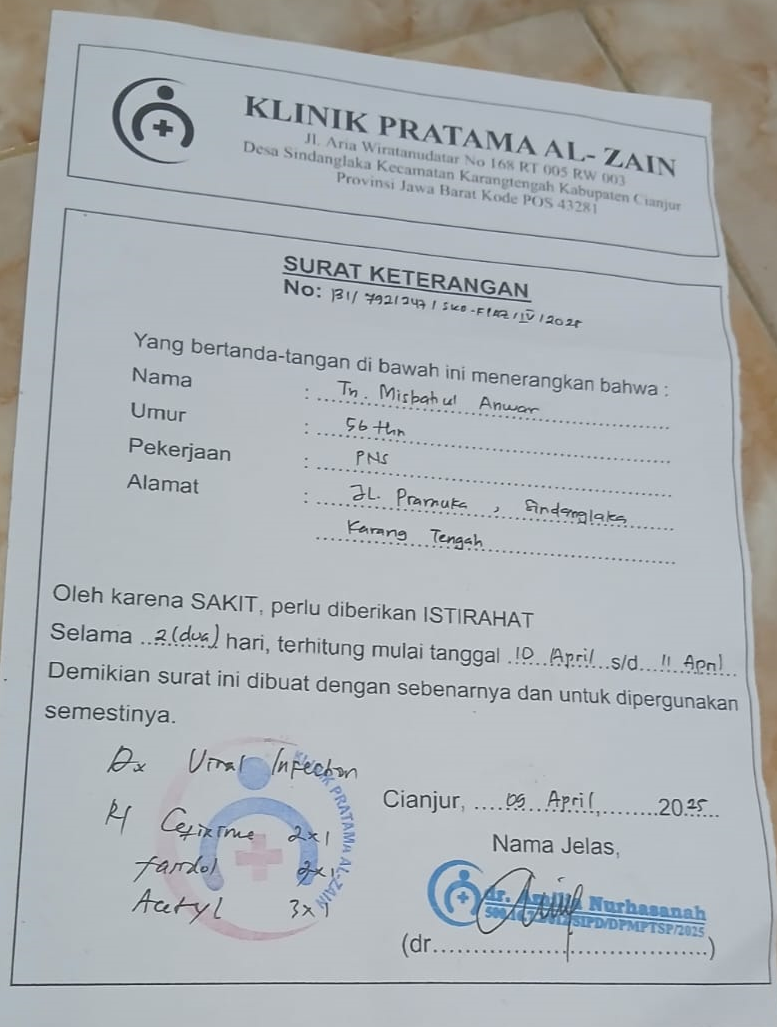 KLINIK PRATAMA AL- ZAIN
Jl. Aria Wiratanudatar No 168 RT 005 RW 003
Desa Sindanglaka Kecamatan Karangtengah Kabupaten Cianjur
Provinsi Jawa Barat Kode POS 43281
SURAT KETERANGAN
No: /IV/2025
Yang bertanda-tangan di bawah ini menerangkan bahwa :
Nama : Tn. Misbahul Anwar
Umur : 56 thn
Pekerjaan : PNS
Alamat : JL. Pramuka, Sindanglaka
Karang Tengah
Oleh karena SAKIT, perlu diberikan ISTIRAHAT
Selama 2 (dua) hari, terhitung mulai tanggal 10 April s/d 11 April
Demikian surat ini dibuat dengan sebenarnya dan untuk dipergunakan
semestinya.
Dx Viral Infection
Cefixime 2x1
fardol
Acetyl 3x1
KLINIK PRATAMA AL-ZAIN
Cianjur, 09 April 2025
Nama Jelas,
dr. Nurhasanah
SIPD/DPMPTSP/2025
(dr. )